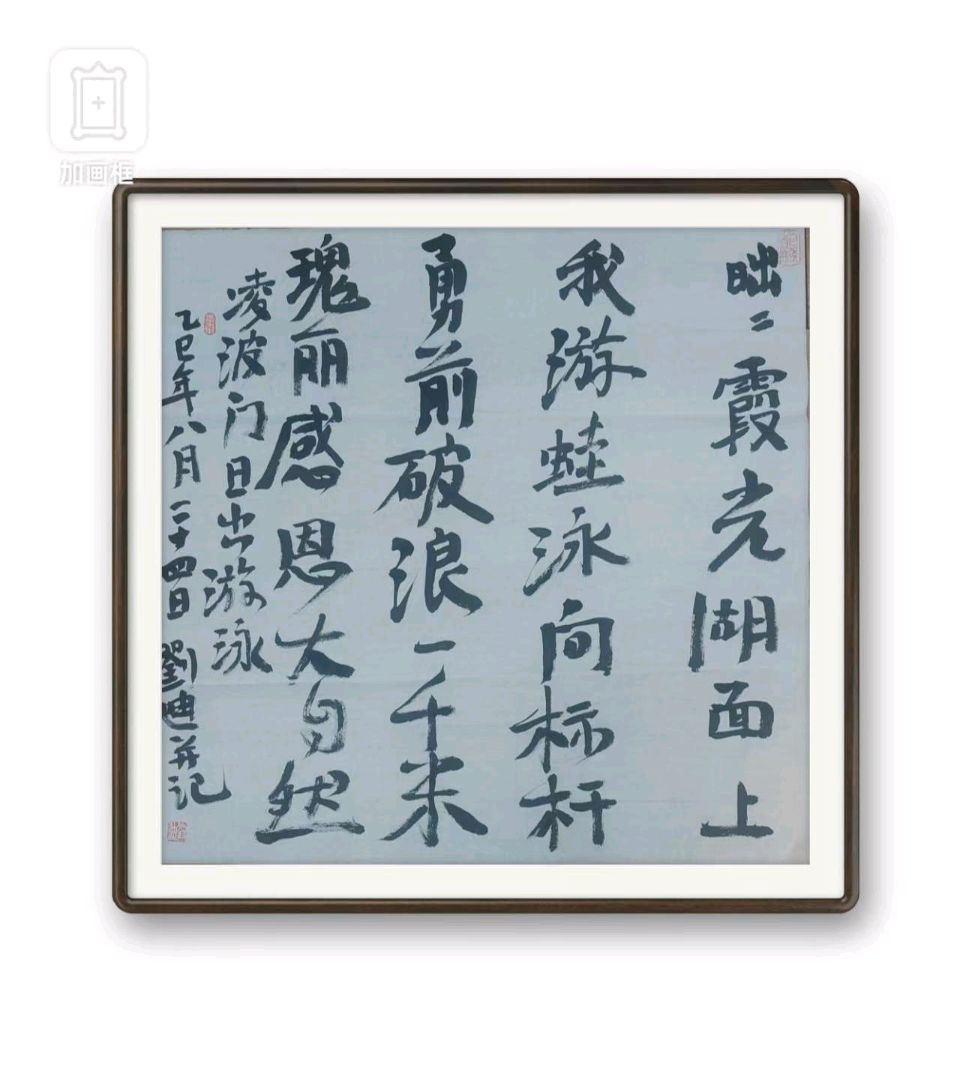 加画框
昢〻霞光湖面上
我游蛙泳向标杆
勇前破浪一千米
瑰丽感恩大自然
凌波门日出游泳
乙巳年八月二十四日劉迪并记